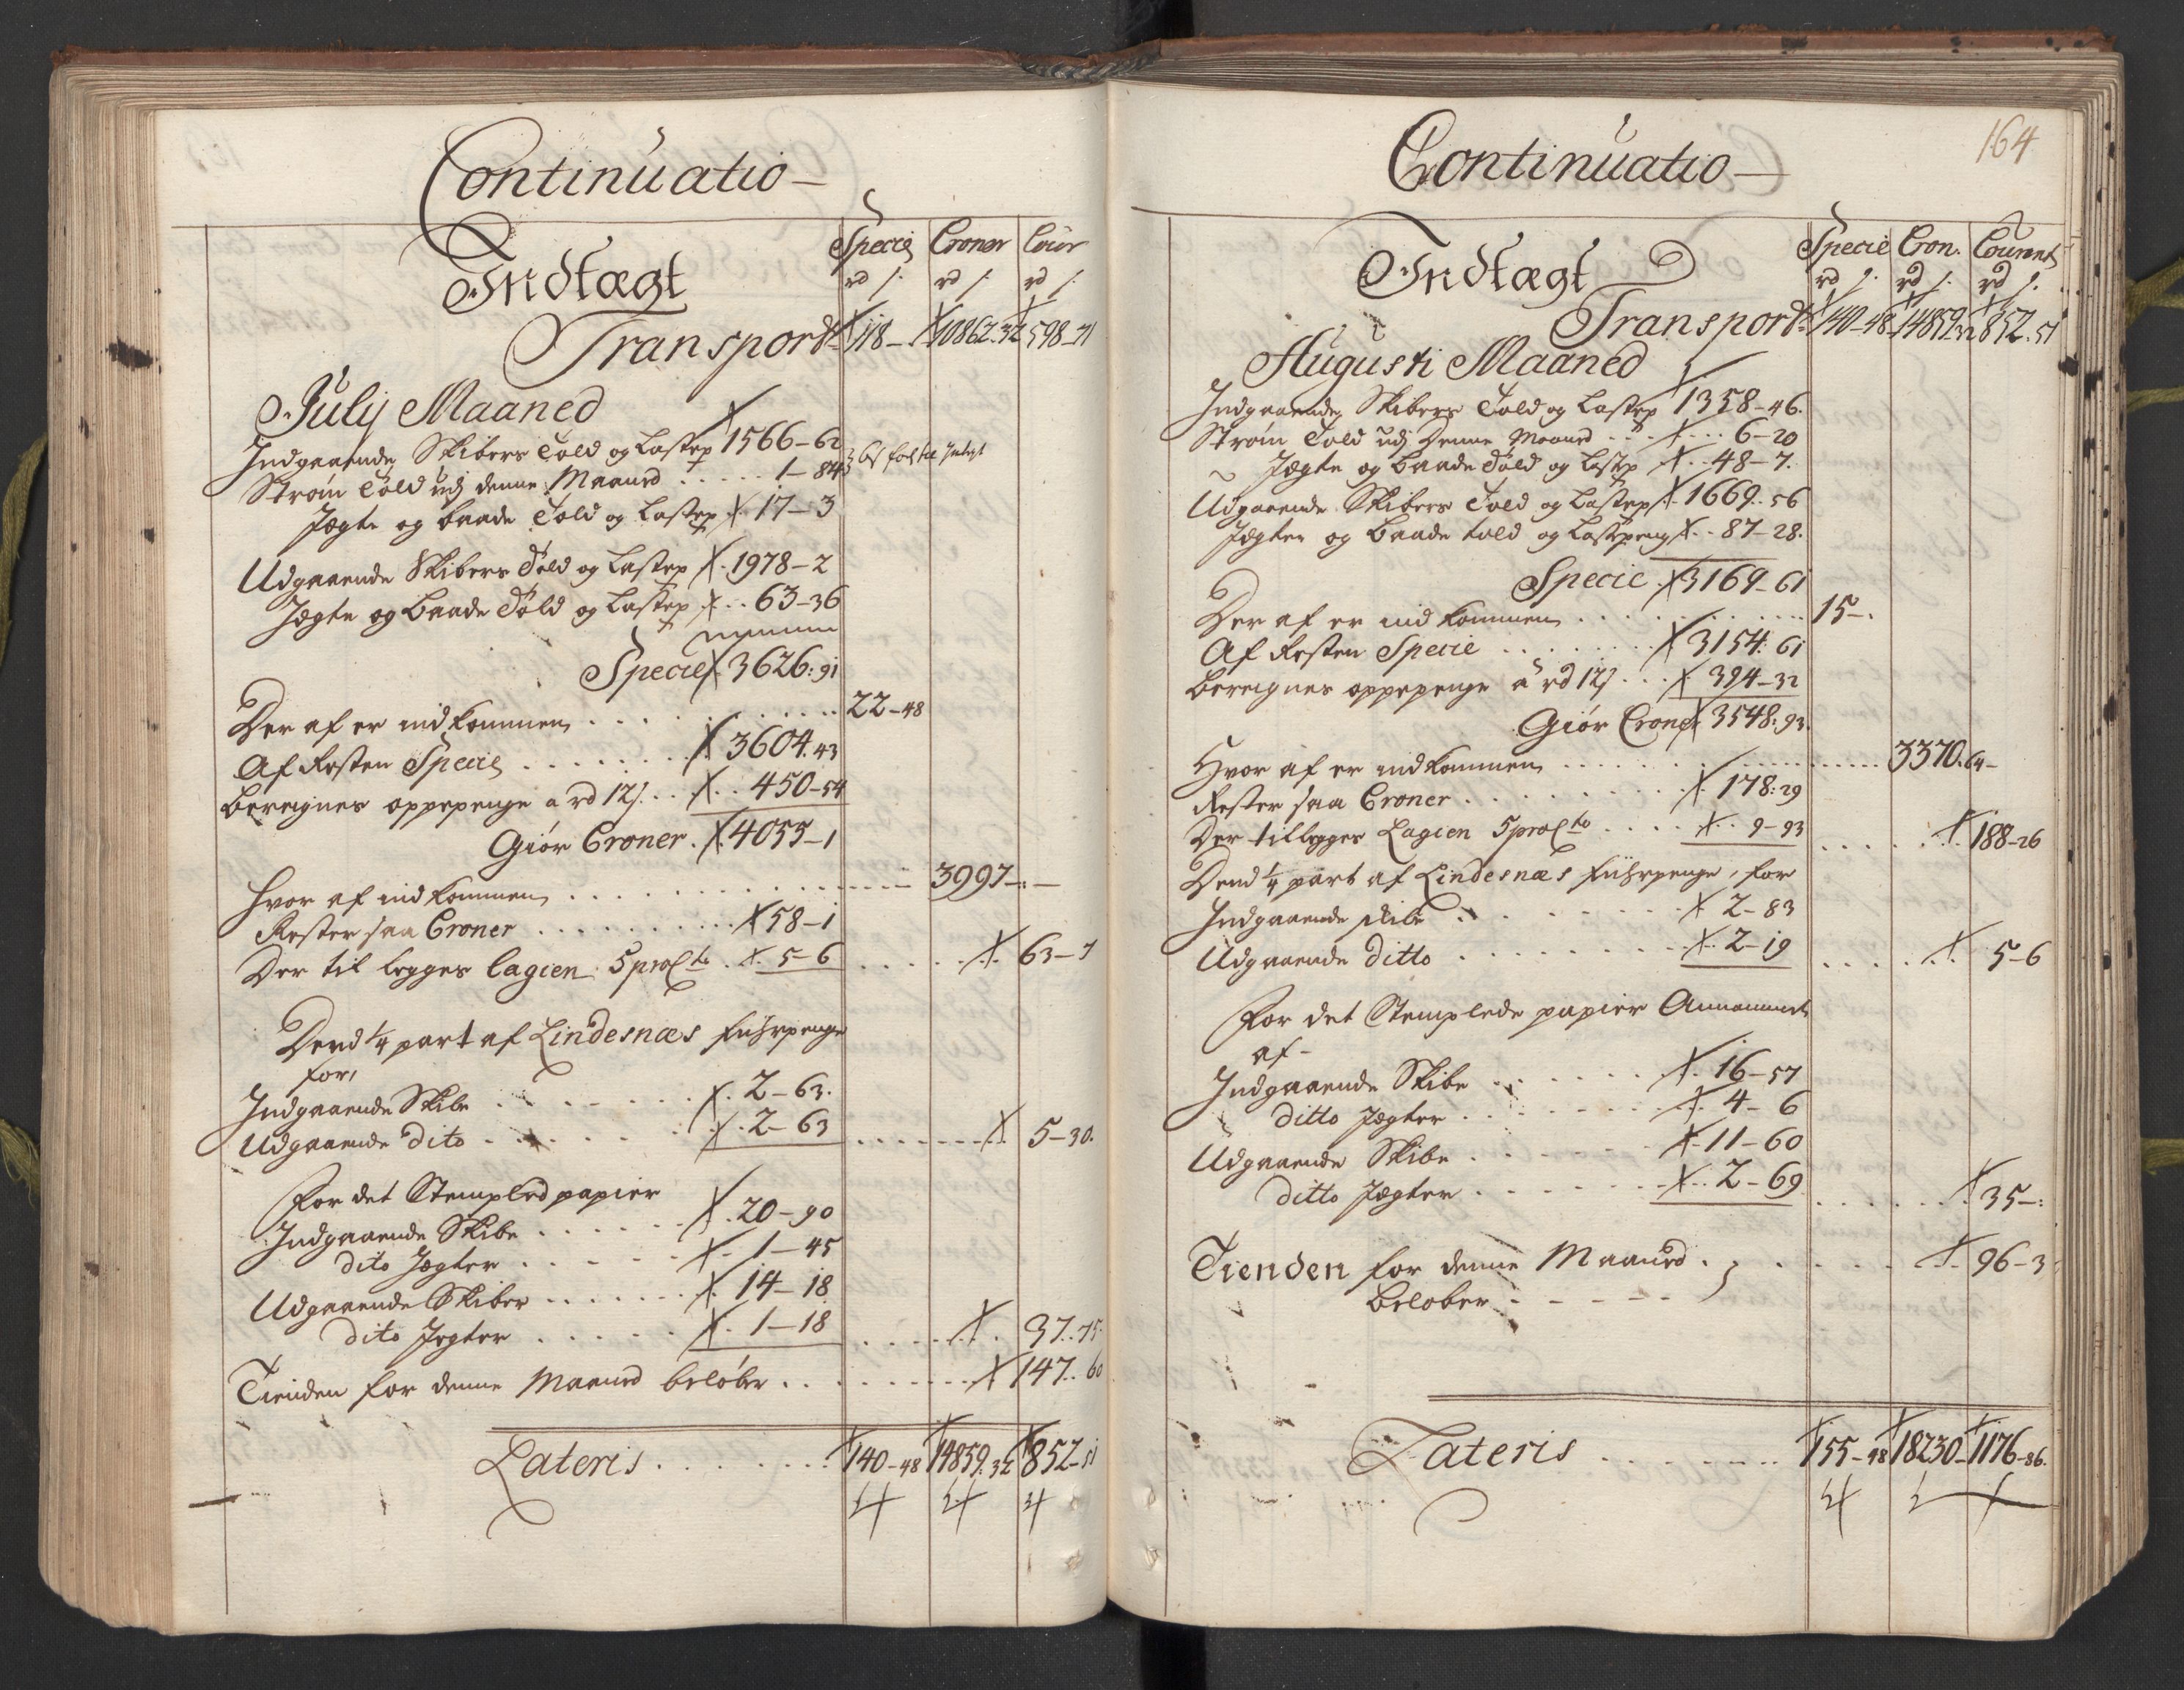 Continuatio
Indtægt
Specie Croner Cour
rd s. rd s. rd s.
Transport 118 - 10862.32 598-71
July Maaned
Indgaaende Skibers Told og Lastep 1566-62
Strøm Told udj denne Maaned 1-84
Jægte og baade Told og Lastep 17-3
Udgaaende Skibers Told og Lastep 1978-2
Jægte og Baade Told og Lastep 63-36
Specie 3626:91
Der af er indkommen 22-48
Af Resten Specie 3604.43
Beregnes oppepenge a rd 12s. 450-54
Giør Croner. 4055-1
Hvor af indkommen 3997-:-
Rester saa Croner 58-1
Der til legges lagien 5 proCto 5-6 63-7
Dend 1/4 part af Lindesnæs fuhrpenge
for,
Indgaaende Skibe 2-63.
Udgaaende dito 2-63 5-30.
For det Stempled papier
Indgaaende Skibe 20-90
dito Jægter 1-45
Udgaaende Skiber 14-18
dito Jegter 1-18 37..75.
Tienden for denne Maaned beløber 147..60
Lateris 140-48 14859.32 852-51
164
Continuatio
Indtægt
Specie Cron. Courant
rd s. rd s. rd s.
Transport 140-48 14859-32 852.51
Augusti Maaned
Indgaaende Skibers Told og Lastep 1358-46.
Strøm Told udj Denne Maaned 6-20
Jægte og Baade Told og Lastp 48-7.
Udgaaende Skibers Told og Lastep 1669..56
Jægter og Baade told og Lastpeng 87-28.
Specie 3169-61
Der af er indkommen 15-.
Af Resten Specie 3154:61
Beregnes oppepenge a rd 12s 394-32
Giør Croner 3548:93.
Hvor af er indkommen 3370.64-
Rester saa Croner 178:29
Der tillegges Lagien 5 proCto 9-93 188-26
Dend 1/4 part af Lindesnæs fuhrpenge, for
Indgaaende skibe 2-83
Udgaaende Ditto 2-19 5-6
For det Stemplede papier Annammet
af-
Indgaaende Skibe 16-57
ditto Jægter 4-6
Udgaaende Skibe 11-60
ditto Jægter 2-69 35-:
Tienden for denne Maaned 96-3
beløber
Lateris 155-48 18230- 1176-86.